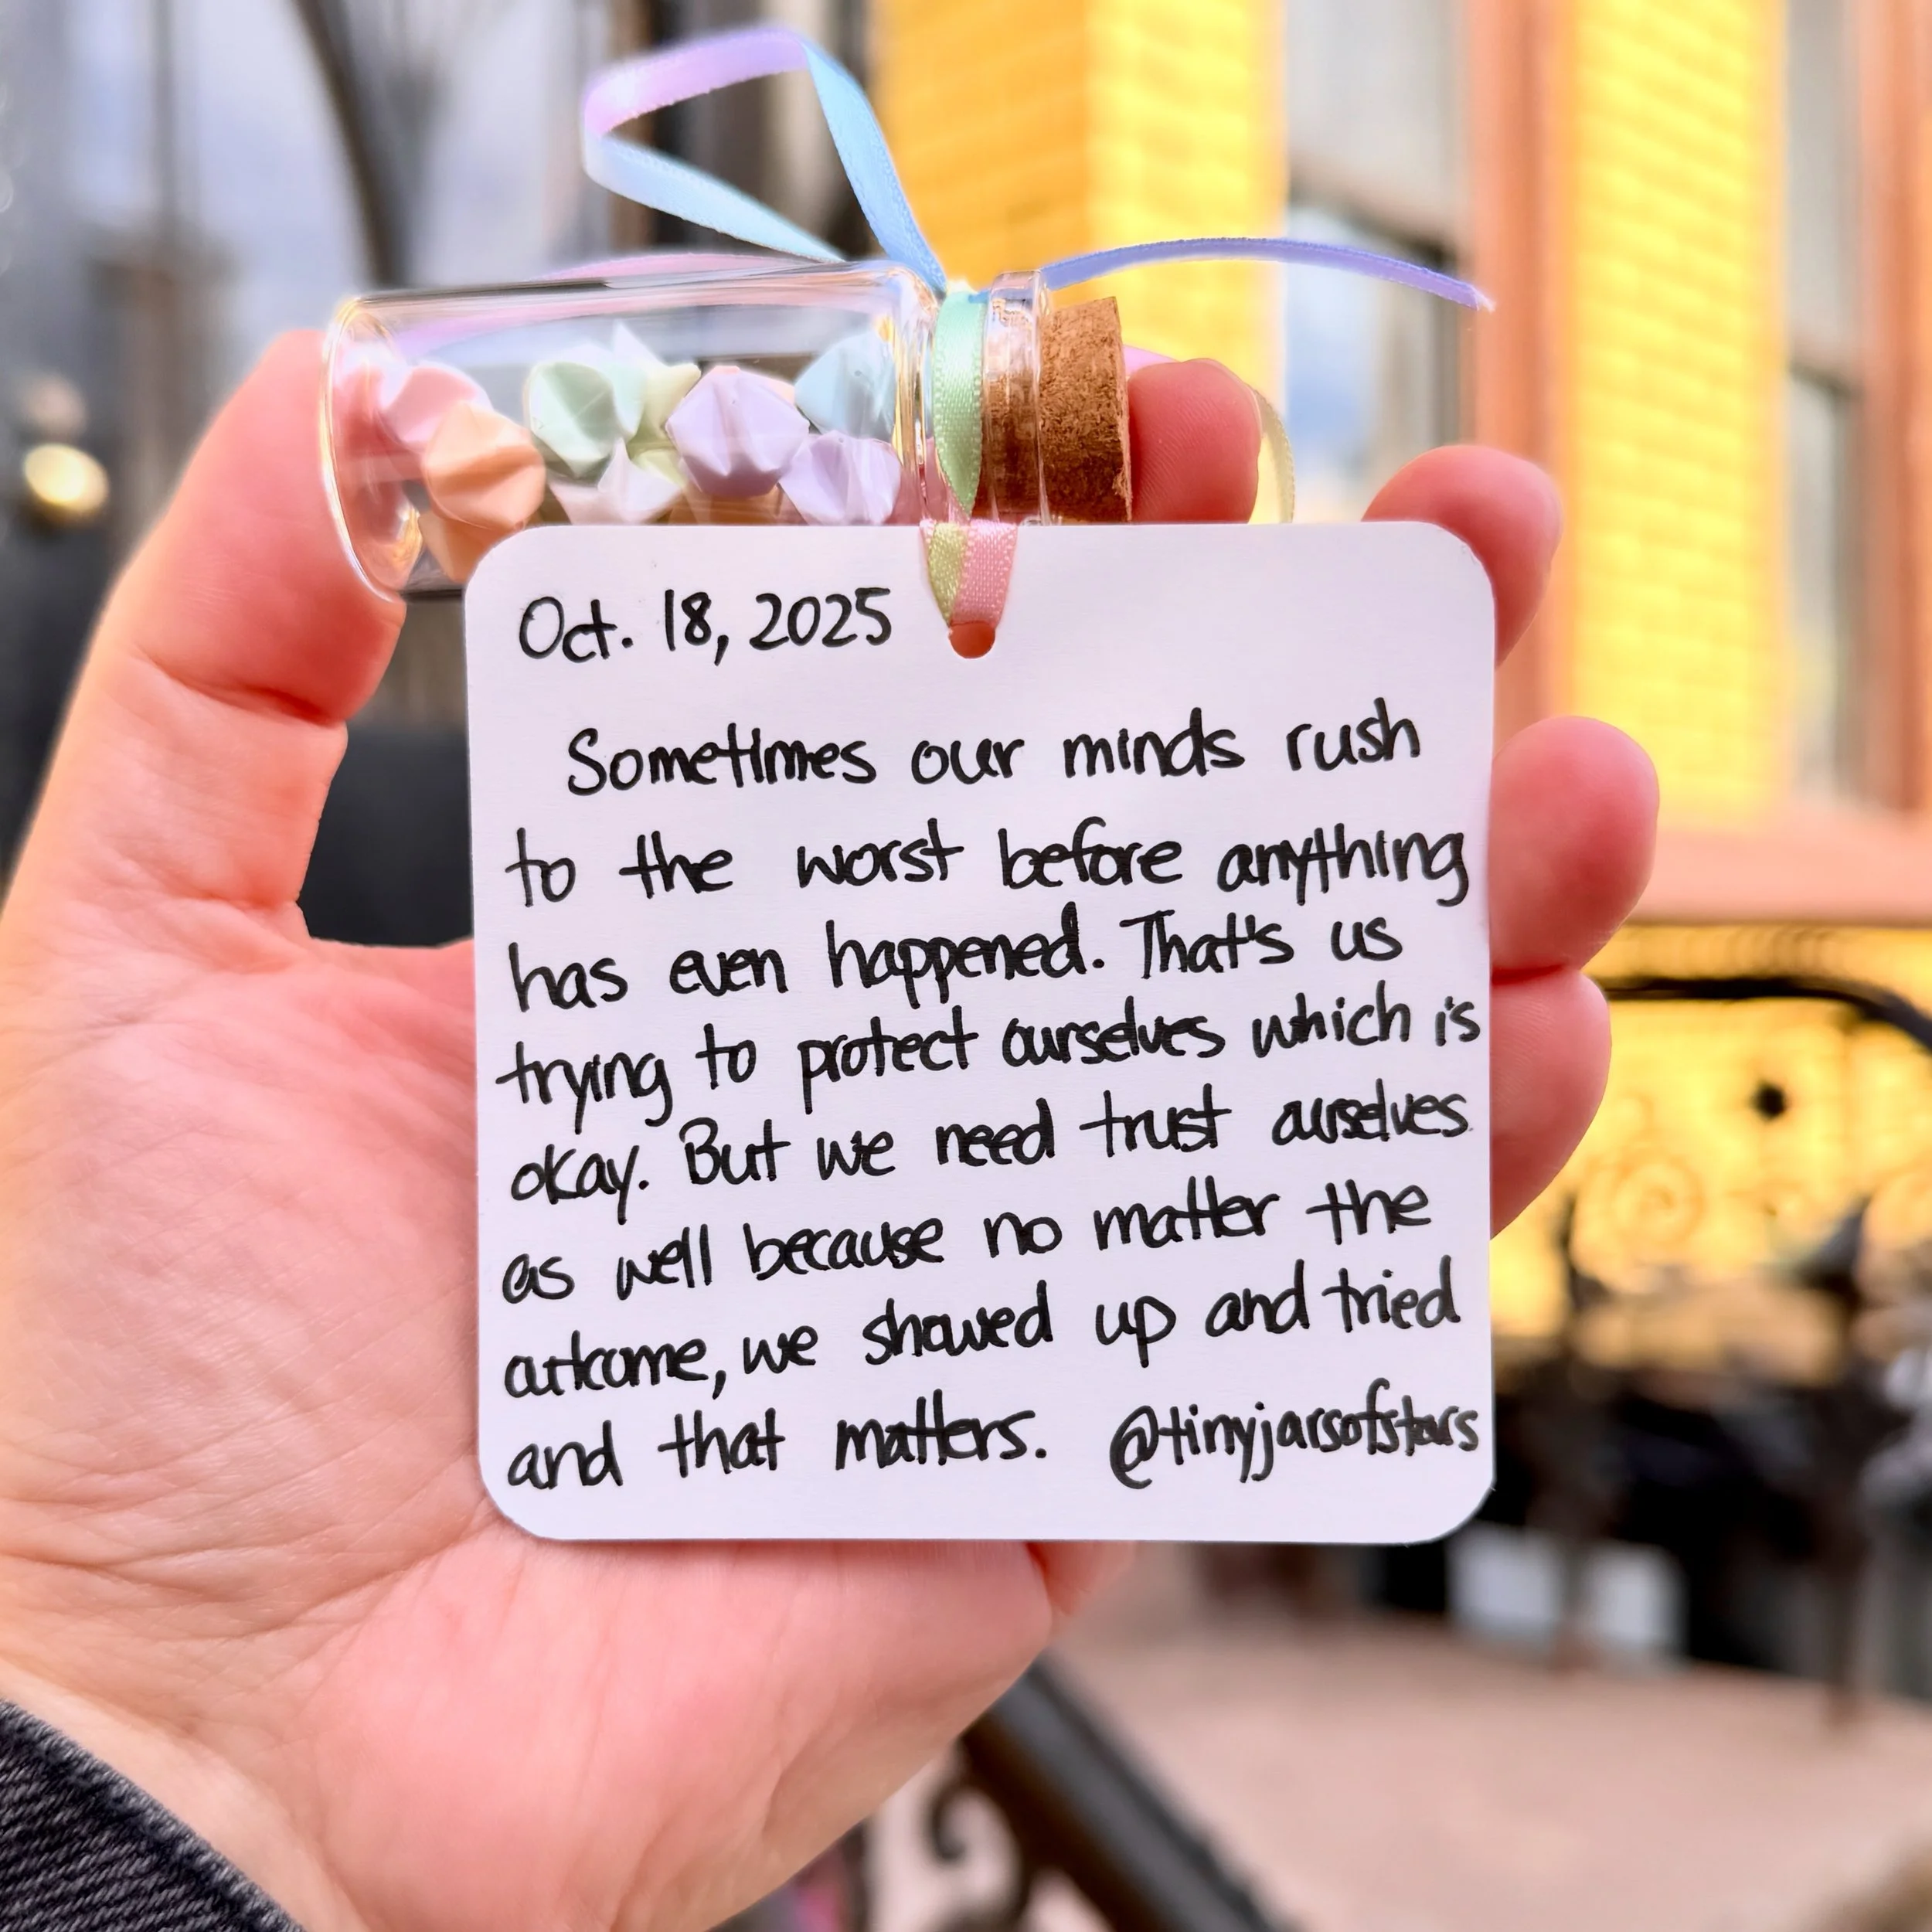 Oct. 18, 2025
Sometimes our minds rush
to the worst before anything
has even happened. That's us
trying to protect ourselves which is
okay. But we need trust ourselves
as well because no matter the
outcome, we showed up and tried
and that matters. @tinyjarsofstars